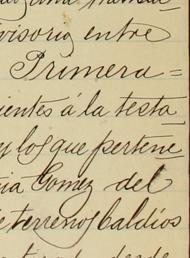 visorio entre
Primera=
ientes á la testa
y los que pertene
ia Gomez del
e terrenos baldíos